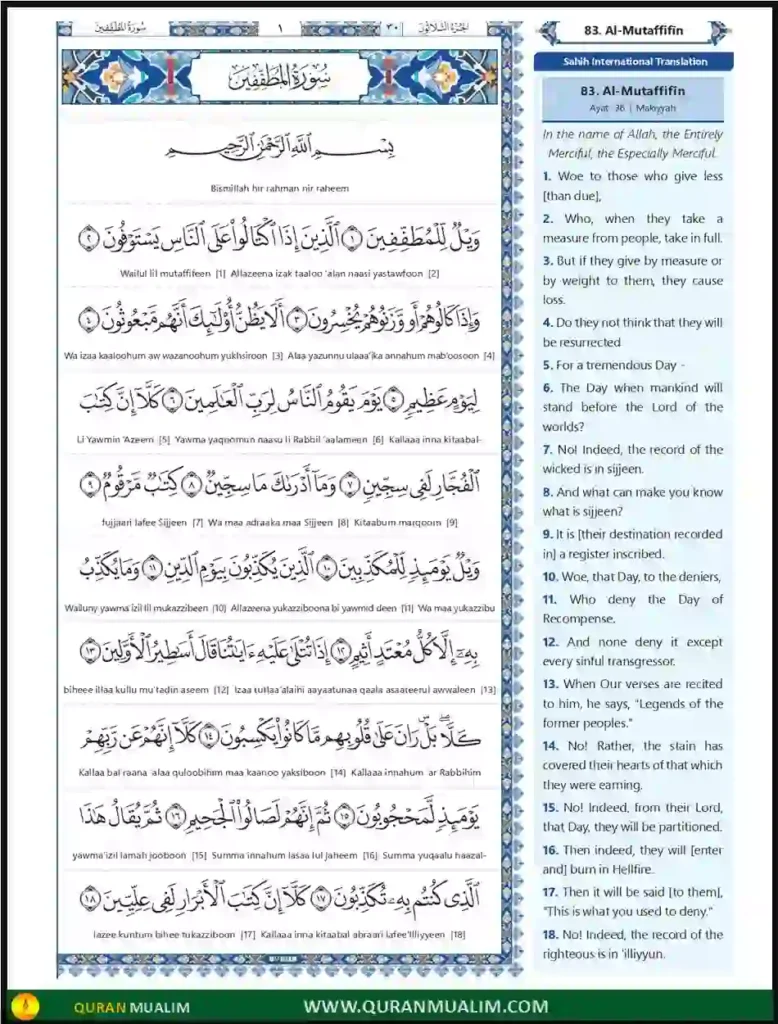 سُورَةُ المُطَفِّفِينَ
١
٣٠
الجُزْءُ الثَّلَاثُونَ
سُورَةُ المُطَفِّفِينَ
بِسْمِ ٱللَّهِ ٱلرَّحْمَٰنِ ٱلرَّحِيمِ
Bismillah hir rahman nir raheem
وَيْلٌ لِّلْمُطَفِّفِينَ ١ ٱلَّذِينَ إِذَا ٱكْتَالُوا۟ عَلَى ٱلنَّاسِ يَسْتَوْفُونَ ٢
Wailul lil mutaffifeen [1] Allazeena izak taaloo 'alan naasi yastawfoon [2]
وَإِذَا كَالُوهُمْ أَو وَّزَنُوهُمْ يُخْسِرُونَ ٣ أَلَا يَظُنُّ أُو۟لَٰٓئِكَ أَنَّهُم مَّبْعُوثُونَ ٤
Wa izaa kaaloohum aw wazanoohum yukhsiroon [3] Alaa yazunnu ulaaa'ika annahum mab'oosoon [4]
لِيَوْمٍ عَظِيمٍ ٥ يَوْمَ يَقُومُ ٱلنَّاسُ لِرَبِّ ٱلْعَٰلَمِينَ ٦ كَلَّآ إِنَّ كِتَٰبَ
Li Yawmin 'Azeem [5] Yawma yaqoomun naasu li Rabbil 'aalameen [6] Kallaaa inna kitaabal-
ٱلْفُجَّارِ لَفِى سِجِّينٍ ٧ وَمَآ أَدْرَىٰكَ مَا سِجِّينٌ ٨ كِتَٰبٌ مَّرْقُومٌ ٩
fujjaari lafee Sijjeen [7] Wa maa adraaka maa Sijjeen [8] Kitaabum marqoom [9]
وَيْلٌ يَوْمَئِذٍ لِّلْمُكَذِّبِينَ ١٠ ٱلَّذِينَ يُكَذِّبُونَ بِيَوْمِ ٱلدِّينِ ١١ وَمَا يُكَذِّبُ
Wailuny yawma'izil lil mukazzibeen [10] Allazeena yukazziboona bi yawmid deen [11] Wa maa yukazzibu
بِهِۦٓ إِلَّا كُلُّ مُعْتَدٍ أَثِيمٍ ١٢ إِذَا تُتْلَىٰ عَلَيْهِ ءَايَٰتُنَا قَالَ أَسَٰطِيرُ ٱلْأَوَّلِينَ ١٣
biheee illaa kullu mu'tadin aseem [12] Izaa tutlaa'alaihi aayaatunaa qaala asaateerul awwaleen [13]
كَلَّا ۖ بَلْ ۜ رَانَ عَلَىٰ قُلُوبِهِم مَّا كَانُوا۟ يَكْسِبُونَ ١٤ كَلَّآ إِنَّهُمْ عَن رَّبِّهِمْ
Kallaa bal raana 'alaa quloobihim maa kaanoo yaksiboon [14] Kallaaa innahum ar Rabbihim
يَوْمَئِذٍ لَّمَحْجُوبُونَ ١٥ ثُمَّ إِنَّهُمْ لَصَالُوا۟ ٱلْجَحِيمِ ١٦ ثُمَّ يُقَالُ هَٰذَا
yawma'izil lamah jooboon [15] Summa innahum lasaa lul Jaheem [16] Summa yuqaalu haazal-
ٱلَّذِى كُنتُم بِهِۦ تُكَذِّبُونَ ١٧ كَلَّآ إِنَّ كِتَٰبَ ٱلْأَبْرَارِ لَفِى عِلِّيِّينَ ١٨
lazee kuntum bihee tukazziboon [17] Kallaaa inna kitaabal abraari lafee'Illiyyeen [18]
83. Al-Mutaffifin
Sahih International Translation
83. Al-Mutaffifin
Ayat 36 | Makiyyah
In the name of Allah, the Entirely
Merciful, the Especially Merciful.
1. Woe to those who give less
[than due],
2. Who, when they take a
measure from people, take in full.
3. But if they give by measure or
by weight to them, they cause
loss.
4. Do they not think that they will
be resurrected
5. For a tremendous Day -
6. The Day when mankind will
stand before the Lord of the
worlds?
7. No! Indeed, the record of the
wicked is in sijjeen.
8. And what can make you know
what is sijjeen?
9. It is [their destination recorded
in] a register inscribed.
10. Woe, that Day, to the deniers,
11. Who deny the Day of
Recompense.
12. And none deny it except
every sinful transgressor.
13. When Our verses are recited
to him, he says, "Legends of the
former peoples."
14. No! Rather, the stain has
covered their hearts of that which
they were earning.
15. No! Indeed, from their Lord,
that Day, they will be partitioned.
16. Then indeed, they will [enter
and] burn in Hellfire.
17. Then it will be said [to them],
"This is what you used to deny."
18. No! Indeed, the record of the
righteous is in 'illiyyun.
QURAN MUALIM
WWW.QURANMUALIM.COM